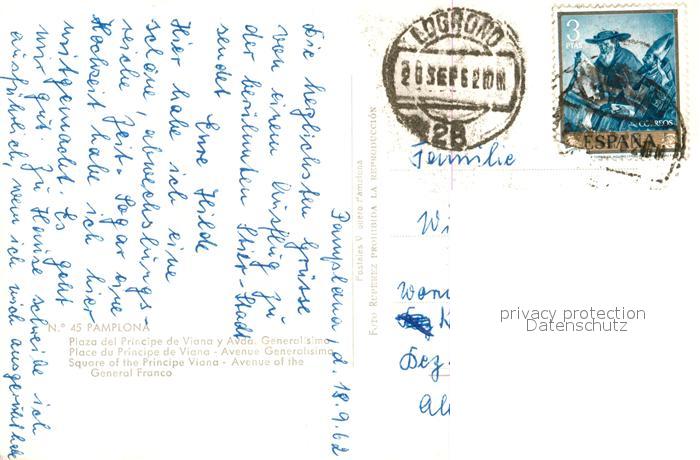 Pamplona, d. 18.9.62
Die herzlichsten Grüsse
von einem Ausflug zu
der berühmten Stier-Stadt
sendet Eure Hilde
Hier habe ich eine
schöne, abwechslungs-
reiche Zeit. Sogar eine
Hochzeit habe ich hier
mitgemacht. Es geht
mir gut. Zu Hause schreibe ich
ausführlich, wenn ich mich ausgeruht habe
N.º 45 PAMPLONA
Plaza del Príncipe de Viana y Avda. Generalísimo
Place du Príncipe de Viana - Avenue Generalísimo
Square of the Príncipe Viana - Avenue of the
General Franco
Postales V
Pamplona
FOTO RUPEREZ PROHIBIDA LA REPRODUCCIÓN
LOGROÑO
28 SEP 62
2B
3
PTAS
CORREOS
ESPAÑA
Familie
Wi
Bez.
privacy protection
Datenschutz